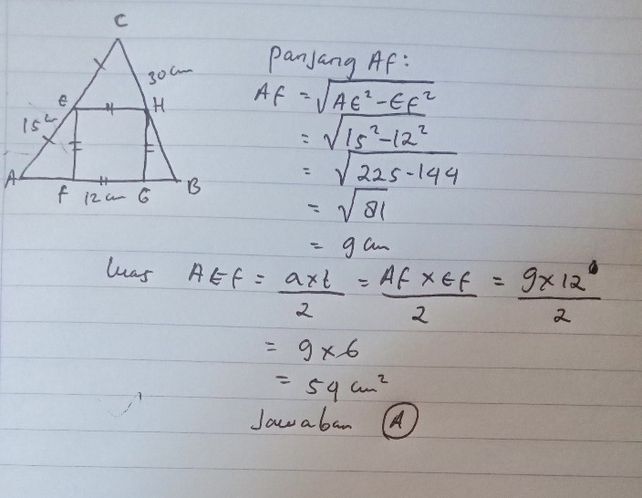 C
30 cm
E
H
15 cm
A
F
12 cm
G
B
Panjang AF:
AF = √AE² - EF²
= √15² - 12²
= √225 - 144
= √81
= 9 cm
luas AEF = a x t / 2 = AF x EF / 2 = 9 x 12 / 2
= 9 x 6
= 54 cm²
Jawaban A